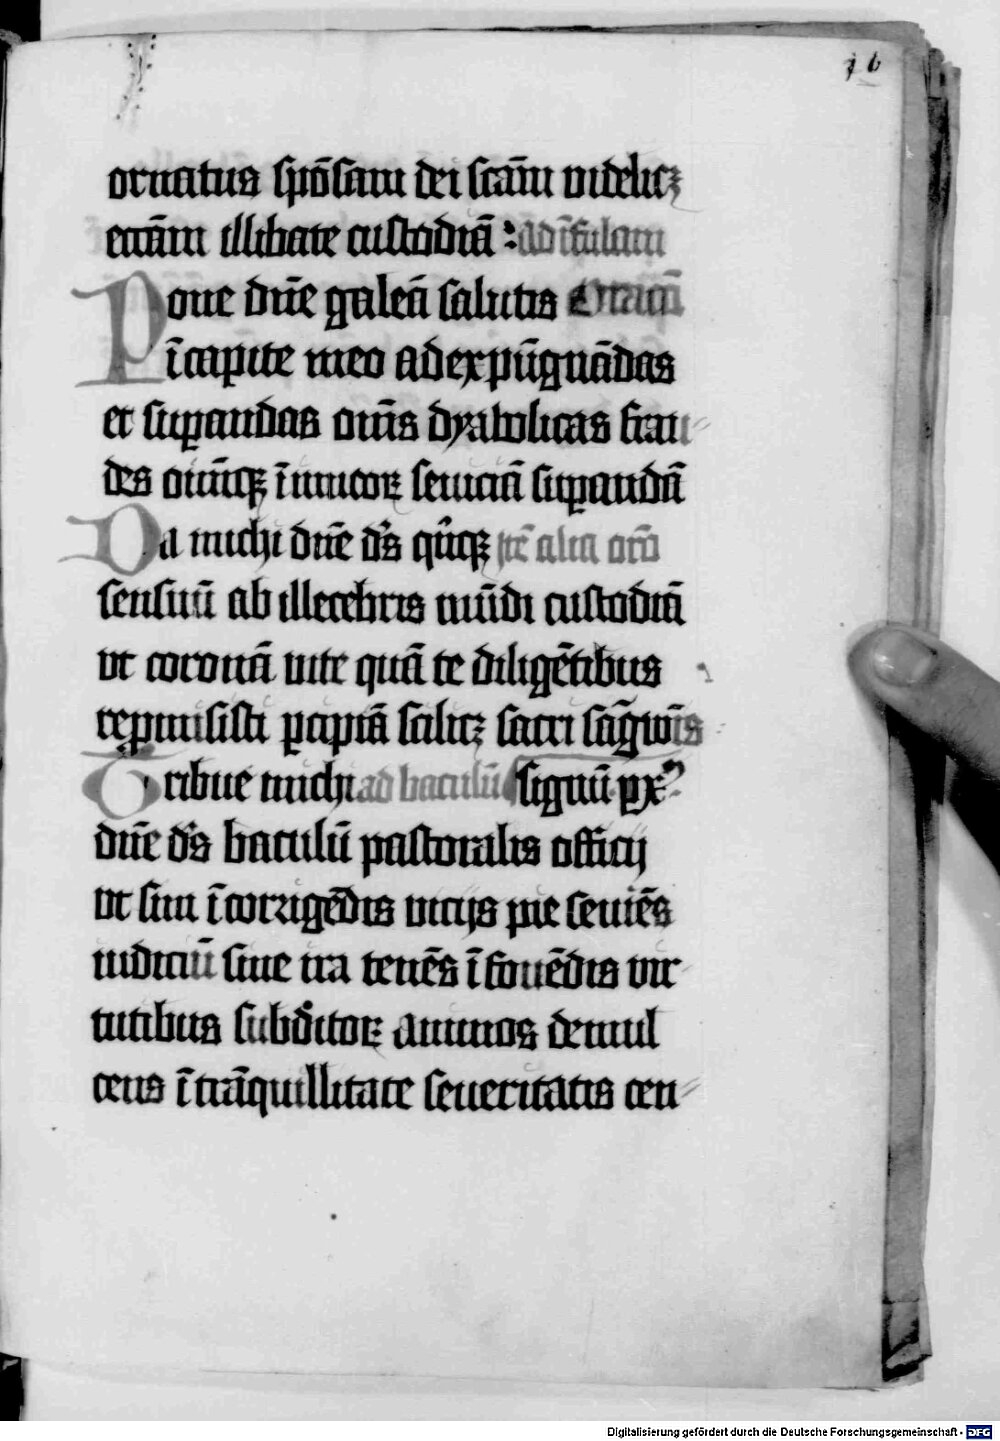 16
ornatus spōsam dei scām videlicꝫ
eccām illibate custodiā : Ad īfulam
Pone dn̄e galeā salutis Oracō
ī capite meo ad expūgnādas
et suꝑandas om̄s dyabolicas frau-
des om̄iūqꝫ īimicoꝝ seuiciā suꝑandā
Da michi dn̄e ds̄ qn̄qꝫ Itē alia oro
sensuū ab illecebris mūdi custodiā
vt coronā vite quā te diligētibus
repmisisti ꝑcipiā scilicꝫ sacri sāgwīs
Tribue michi ad baculū signū px
dn̄e ds̄ baculū pastoralis officij
vt sim ī corrigēdis vicijs pie seuiēs
iudiciū sine ira tenēs ī fouēdis vir-
tutibus subditoꝝ animos demul
cens ī trāquillitate seueritatis cen-
Digitalisierung gefördert durch die Deutsche Forschungsgemeinschaft - DFG